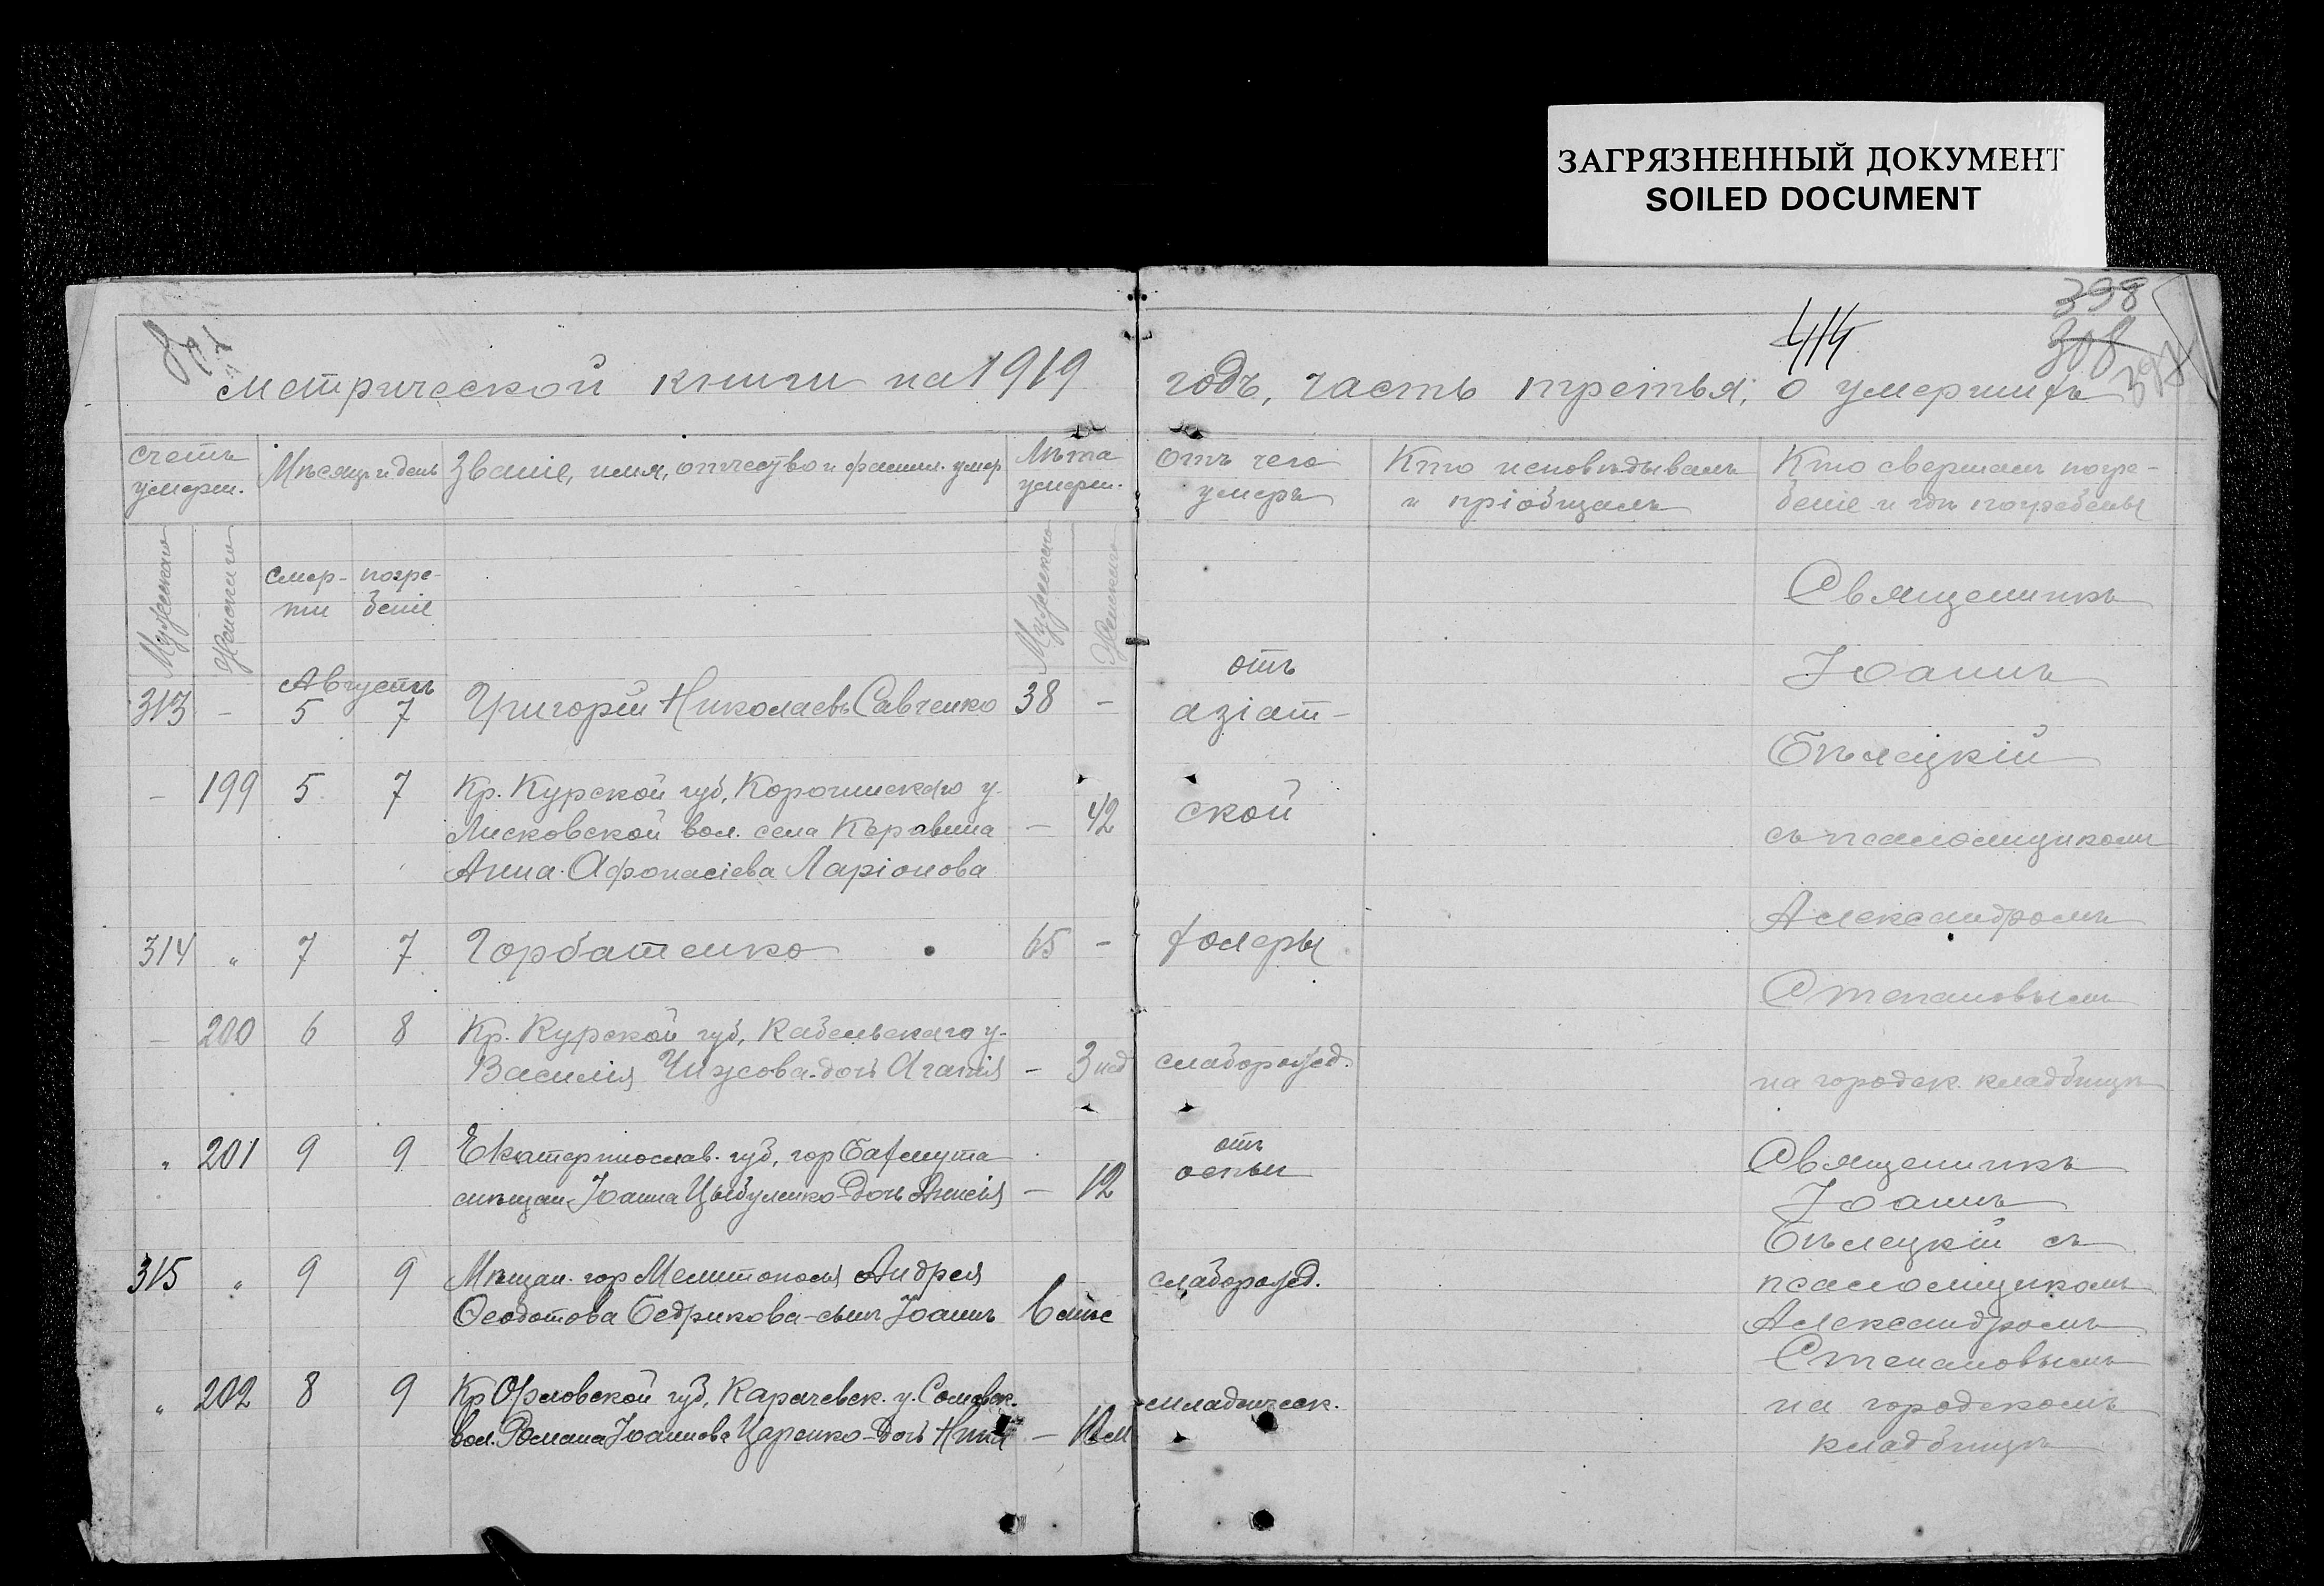 ЗАГРЯЗНЕННЫЙ ДОКУМЕНТ
SOILED DOCUMENT
398
414
308
метрической книги на 1919 годъ, часть третья, о умершихъ
Счетъ умерш.
Мѣсяцъ и день
Званіе, имя, отчество и фамил. умер.
Лѣта умерш.
Отъ чего умеръ
Кто исповѣдывалъ и пріобщалъ
Кто свершалъ погребеніе и гдѣ погребены
Мужского
Женскаго
смерти
погребеніе
Мужского
Женскаго
Августъ
313 - 5 7 Григорій Николаевъ Савченко 38 -
отъ
азіат-
- 199 5 7 Кр. Курской губ, Корочинскаго у.
Лисковской вол. села - 42
Анна Афонасіева Ларіонова
ской
314 " 7 7 Горбатенко 65 -
холеры
- 200 6 8 Кр. Курской губ, у.
Василія Чижова-дочь Агапія - 3 нед
слаборожд.
" 201 9 9 Екатеринослав. губ, гор Бахмута
мѣщан. Іоанна Цыбуленко-дочь - 12
отъ
оспы
315 " 9 9 Мѣщан. гор Мелитополя Андрея
Ѳеодотова Бедрикова-сынъ Іоаннъ
слаборожд.
" 202 8 9 Кр Орловской губ, Карачевск. у.
вол. Романа Іоаннова Царенко-дочь -
младенческ.
Священникъ
Іоаннъ
Бѣлецкій
съ псаломщикомъ
Александромъ
Степановымъ
на городск. кладбищѣ
Священникъ
Іоаннъ
Бѣлецкій съ
псаломщикомъ
Александромъ
Степановымъ
на городскомъ
кладбищѣ